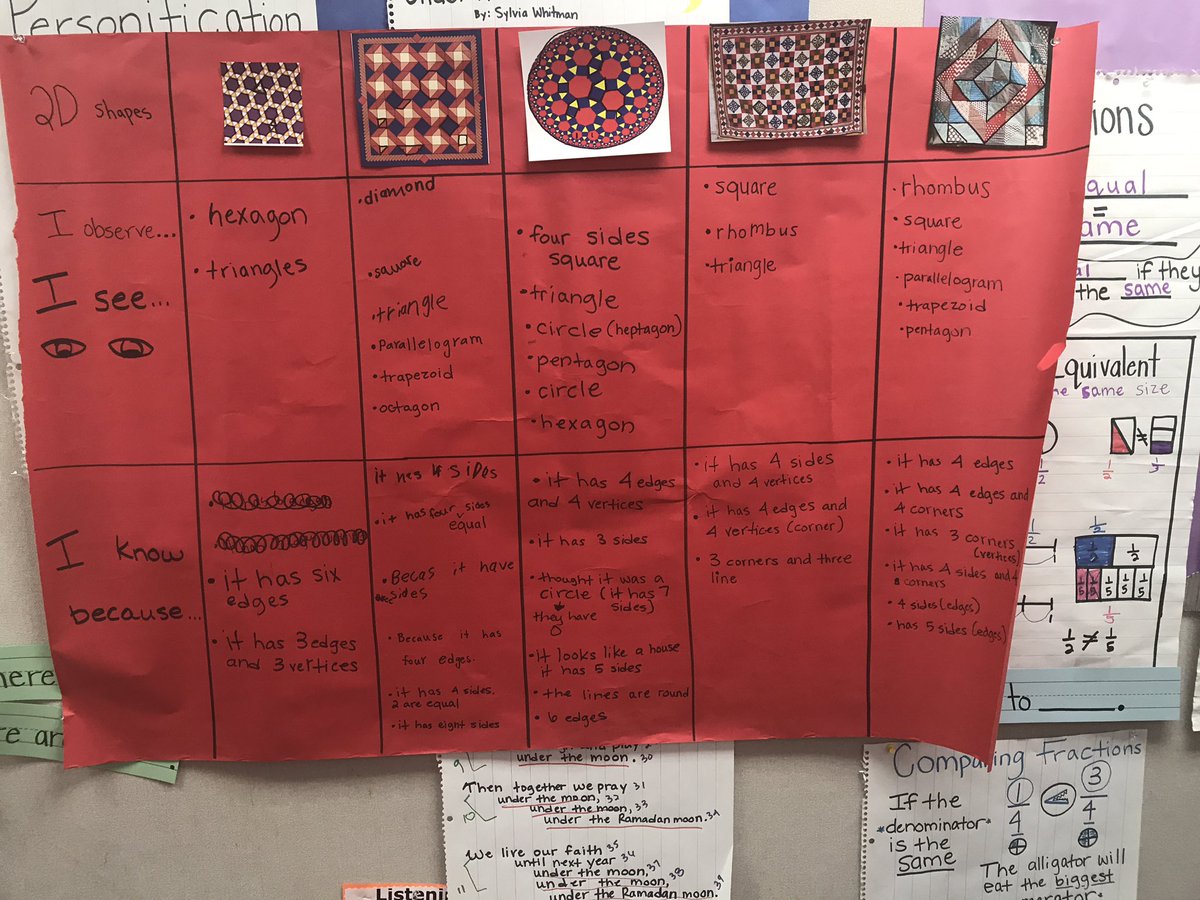 Personification
By: Sylvia Whitman
2D shapes
I observe...
I see...
• hexagon
• triangles
• diamond
• square
• triangle
• Parallelogram
• trapezoid
• octagon
• four sides
square
• triangle
• circle (heptagon)
• pentagon
• circle
• hexagon
• square
• rhombus
• triangle
• rhombus
• square
• triangle
• parallelogram
• trapezoid
• pentagon
I know
because...
• it has six
edges
• it has 3 edges
and 3 vertices
it hes 4 SiDes
• it has four sides
equal
• Becas it have
sides
• Because it has
four edges.
• it has 4 sides.
2 are equal
• it has eight sides
• it has 4 edges
and 4 vertices
• it has 3 sides
• thought it was a
circle (it has 7
sides)
they have
• it looks like a house
it has 5 sides
• the lines are round
• 6 edges
• it has 4 sides
and 4 vertices
• it has 4 edges and
4 vertices (corner)
• 3 corners and three
line
• it has 4 edges
• it has 4 edges and
4 corners
• it has 3 corners
(vertices)
• it has 4 sides and 4
corners
• 4 sides (edges)
• has 5 sides (edges)
ions
qual
=
ame
if they
the same
Equivalent
same size
1/2
≠
1/2
1/2
1/2
1/2
1/5 1/5 1/5 1/5 1/5
1/5
1/2 ≠ 1/5
to ______.
here
re ar
9
under the moon. 30
Then together we pray 31
under the moon, 32
under the moon, 33
10
under the Ramadan moon. 34
We live our faith 35
until next year 36
under the moon, 37
under the moon, 38
11
under the Ramadan moon. 39
Listeni
Comparing Fractions
If the
*denominator*
is the
same
1/4
3/4
The alligator will
eat the biggest